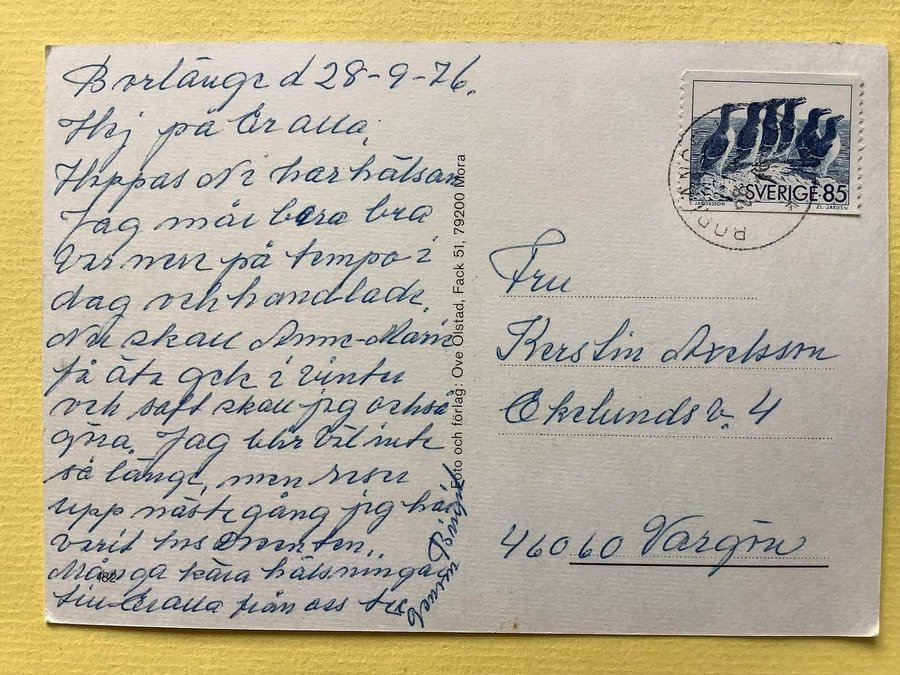 Borlänge d 28-9-76.
Hej på Er alla.
Hoppas Ni har hälsan
Jag mår bara bra
Var men på tempo i
dag och handlade.
Nu skall Anne-Marie
få äta gele i vinter
och saft skall jag också
göra. Jag blir väl inte
så länge, men reser
upp nästa gång jag har
varit hos
Många kära hälsningar
till Er alla från oss
Foto och förlag: Ove Olstad, Fack 51, 79200 Mora
482
SVERIGE 85
E. JAKOBSSON
ZL. JAKUS sc
Fru
Kerstin Axelsson
Ekelundsv. 4
46060 Vargön